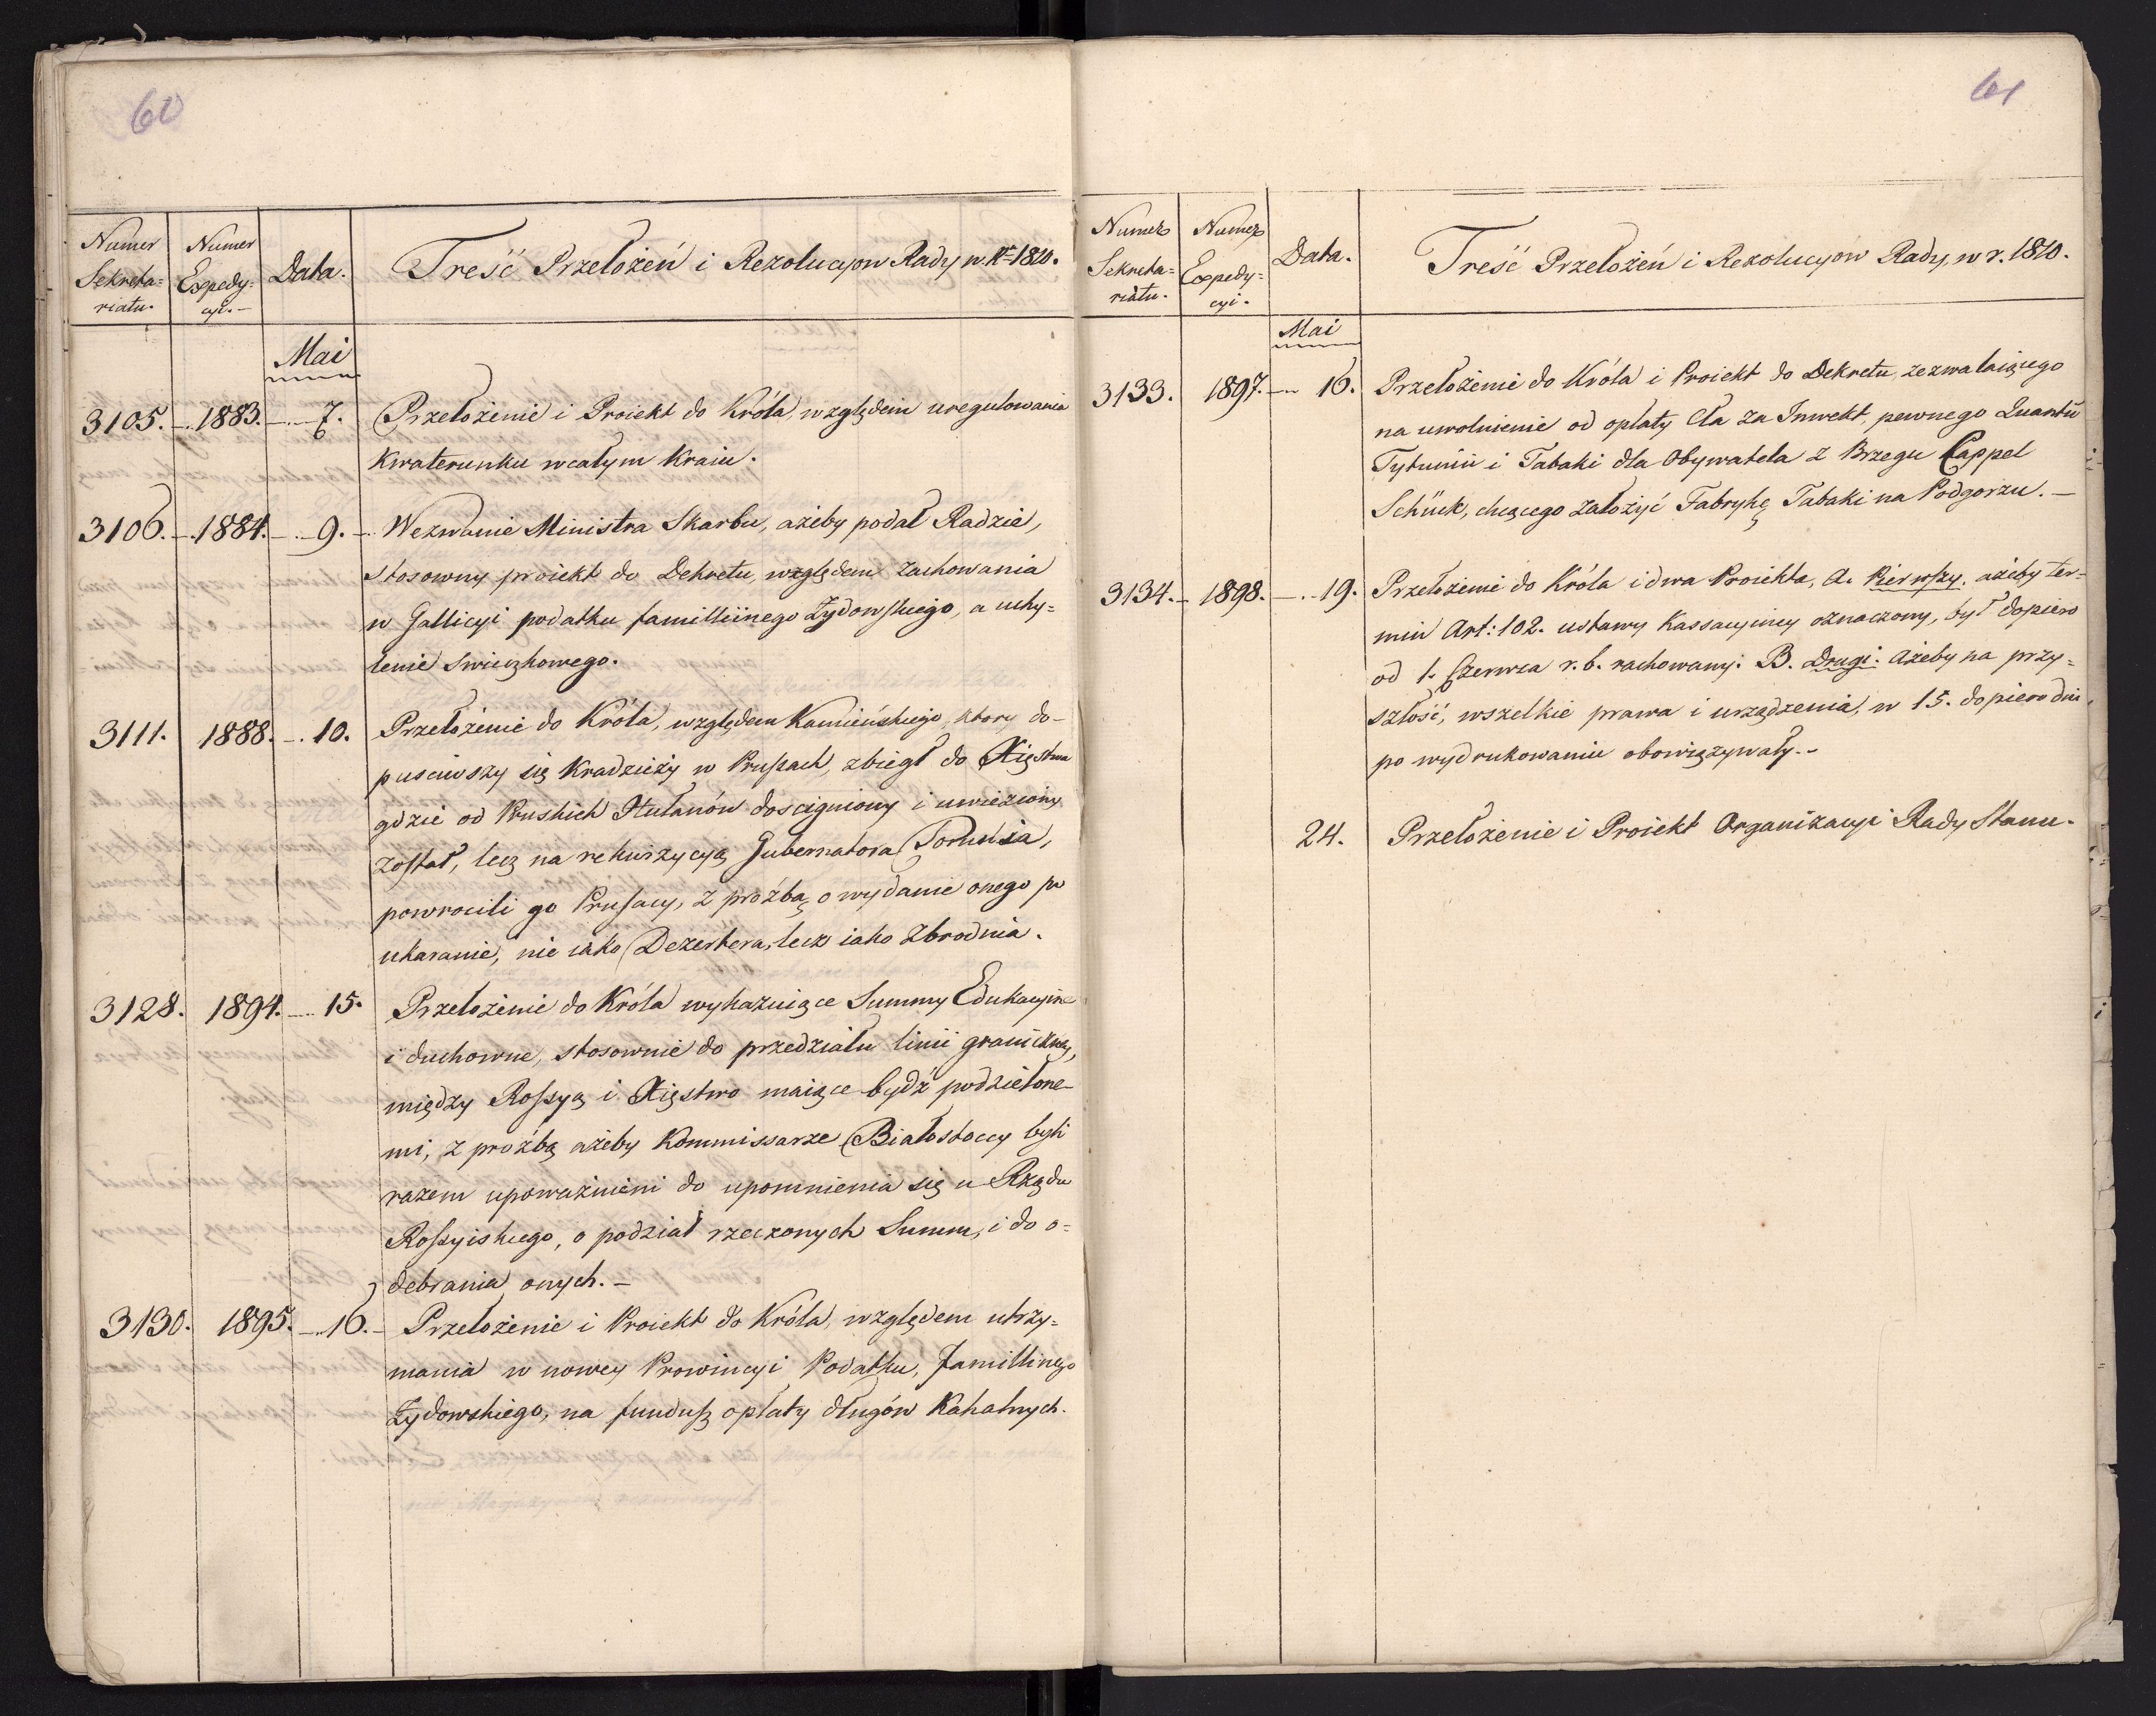 60
Numer Sekreta= riatu.
Numer Expedy= cyi.-
Data.
Treść Przełożeń i Rezolucyow Rady w Rº 1810.
Mai
3105. 1883. 7. Przełożenie i Proiekt do Króla, względem uregulowania
Kwaterunku w całym Kraiu.
3106. 1884. 9. Wezwanie Ministra Skarbu, ażeby podał Radzie,
stosowny proiekt do Dekretu, względem zachowania
w Gallicyi podatku familliinego Żydowskiego, a uchy=
lenie swieczkowego.
3111. 1888. 10. Przełożenie do Króla, względem Kamieńskiego, ktory do-
pusciwszy się Kradzieży w Prusach, zbiegł do Xięstwa
gdzie od Pruskich Hułanów doscigniony i uwieziony
został, lecz na rekwizycyą Gubernatora Torunia,
powrocili go Prusacy, z prożbą o wydanie onego po
ukaranie, nie iako Dezertera, lecz iako Zbrodnia.
3128. 1894. 15. Przełożenie do Króla wykazuiące Summy Edukacyine
i duchowne, stosownie do przedziału linii graniczney,
między Rossyą i Xięstwo maiące bydź podzielone-
mi, z prożbą ażeby Kommissarze Białostoccy byli
razem upoważnieni do upomnienia się u Rządu
Rossyiskiego, o podział rzeczonych Summ, i do o-
debrania onych.-
3130. 1895. 16. Przełożenie i Proiekt do Króla, względem utrzy=
mania w nowey Prowincyi Podatku, familliinego
Żydowskiego, na fundusz opłaty długów Kahalnych.
61
Numer Sekreta= riatu.
Numer Expedy= cyi.
Data.
Treść Przełożeń i Rezolucyow Rady, w r. 1810.
Mai
3133. 1897. 16. Przełożenie do Króla i Proiekt do Dekretu, zezwalaiącego
na uwolnienie od opłaty Cła za Inwekt, pewnego Quantū
Tytuniu i Tabaki dla Obywatela z Brzegu Cappel
Schück, chcącego założyć Fabrykę Tabaki na Podgorzu.-
3134. 1898. 19. Przełożenie do Króla i dwa Proiekta, A. Pierwszy. ażeby ter=
min Art: 102. ustawy Kassacyiney oznaczony, był dopiero
od 1. Czerwca r. b. rachowany. B. Drugi. Ażeby na przy=
szłość, wszelkie prawa i urządzenia, w 15. dopiero dni
po wydrukowaniu obowiązywały.-
24. Przełożenie i Proiekt Organizacyi Rady Stanu.